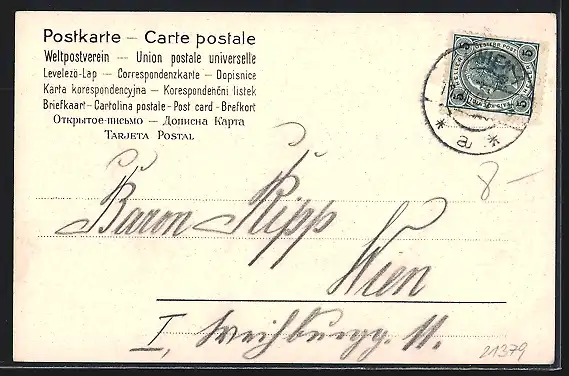 Postkarte – Carte postale
Weltpostverein – Union postale universelle
Levelező-Lap – Correspondenzkarte – Dopisnice
Karta korespondencyjna – Korespondenční lístek
Briefkaart - Cartolina postale - Post card - Brefkort
Открытое-письмо – Дописна Карта
TARJETA POSTAL
5 5
5 5
* a *
8 –
Baron Ripp
Wien
I, Weihburgg. 11.
21379